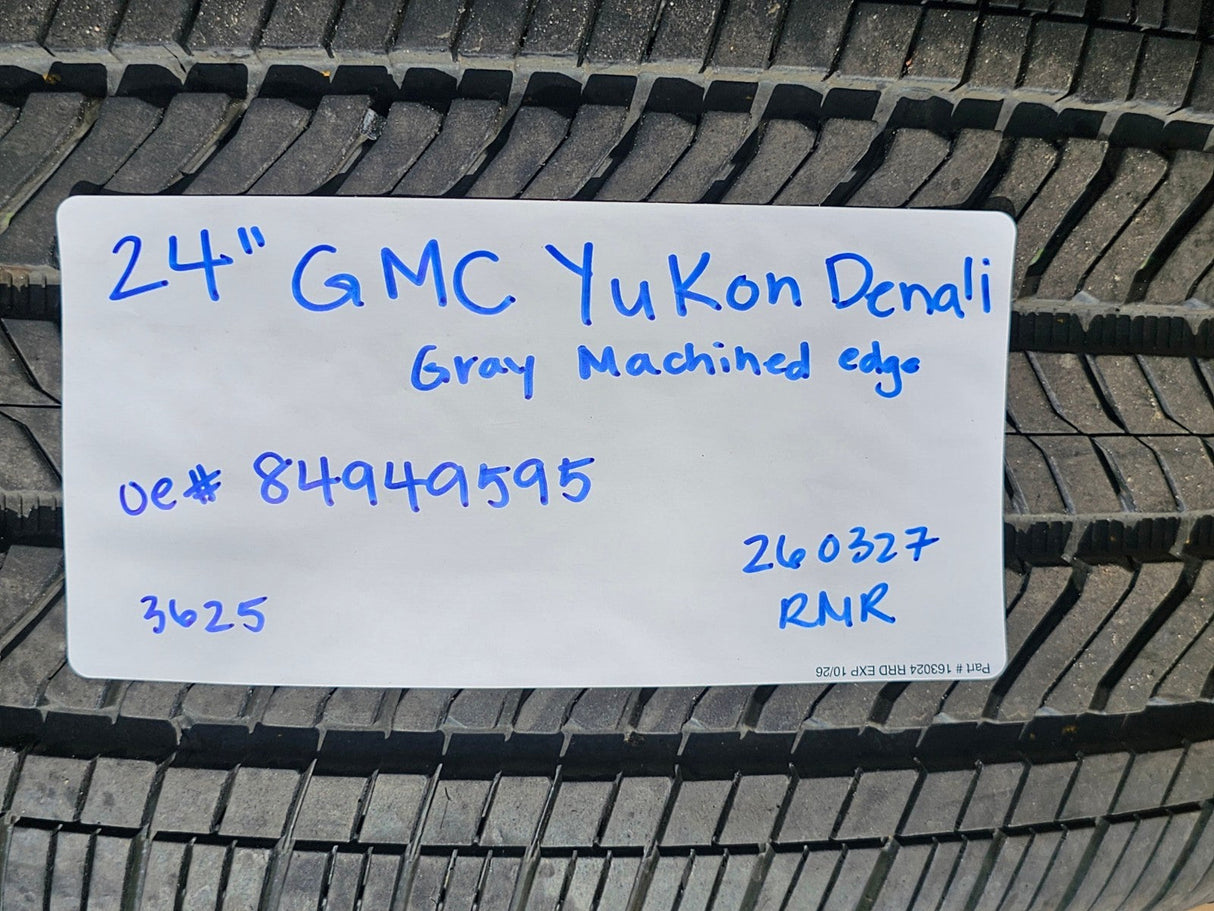 24" GMC YuKon Denali
Gray Machined edge
oe# 84949595
260327
3625
RMR
Part # 163024 RRD EXP 10/26